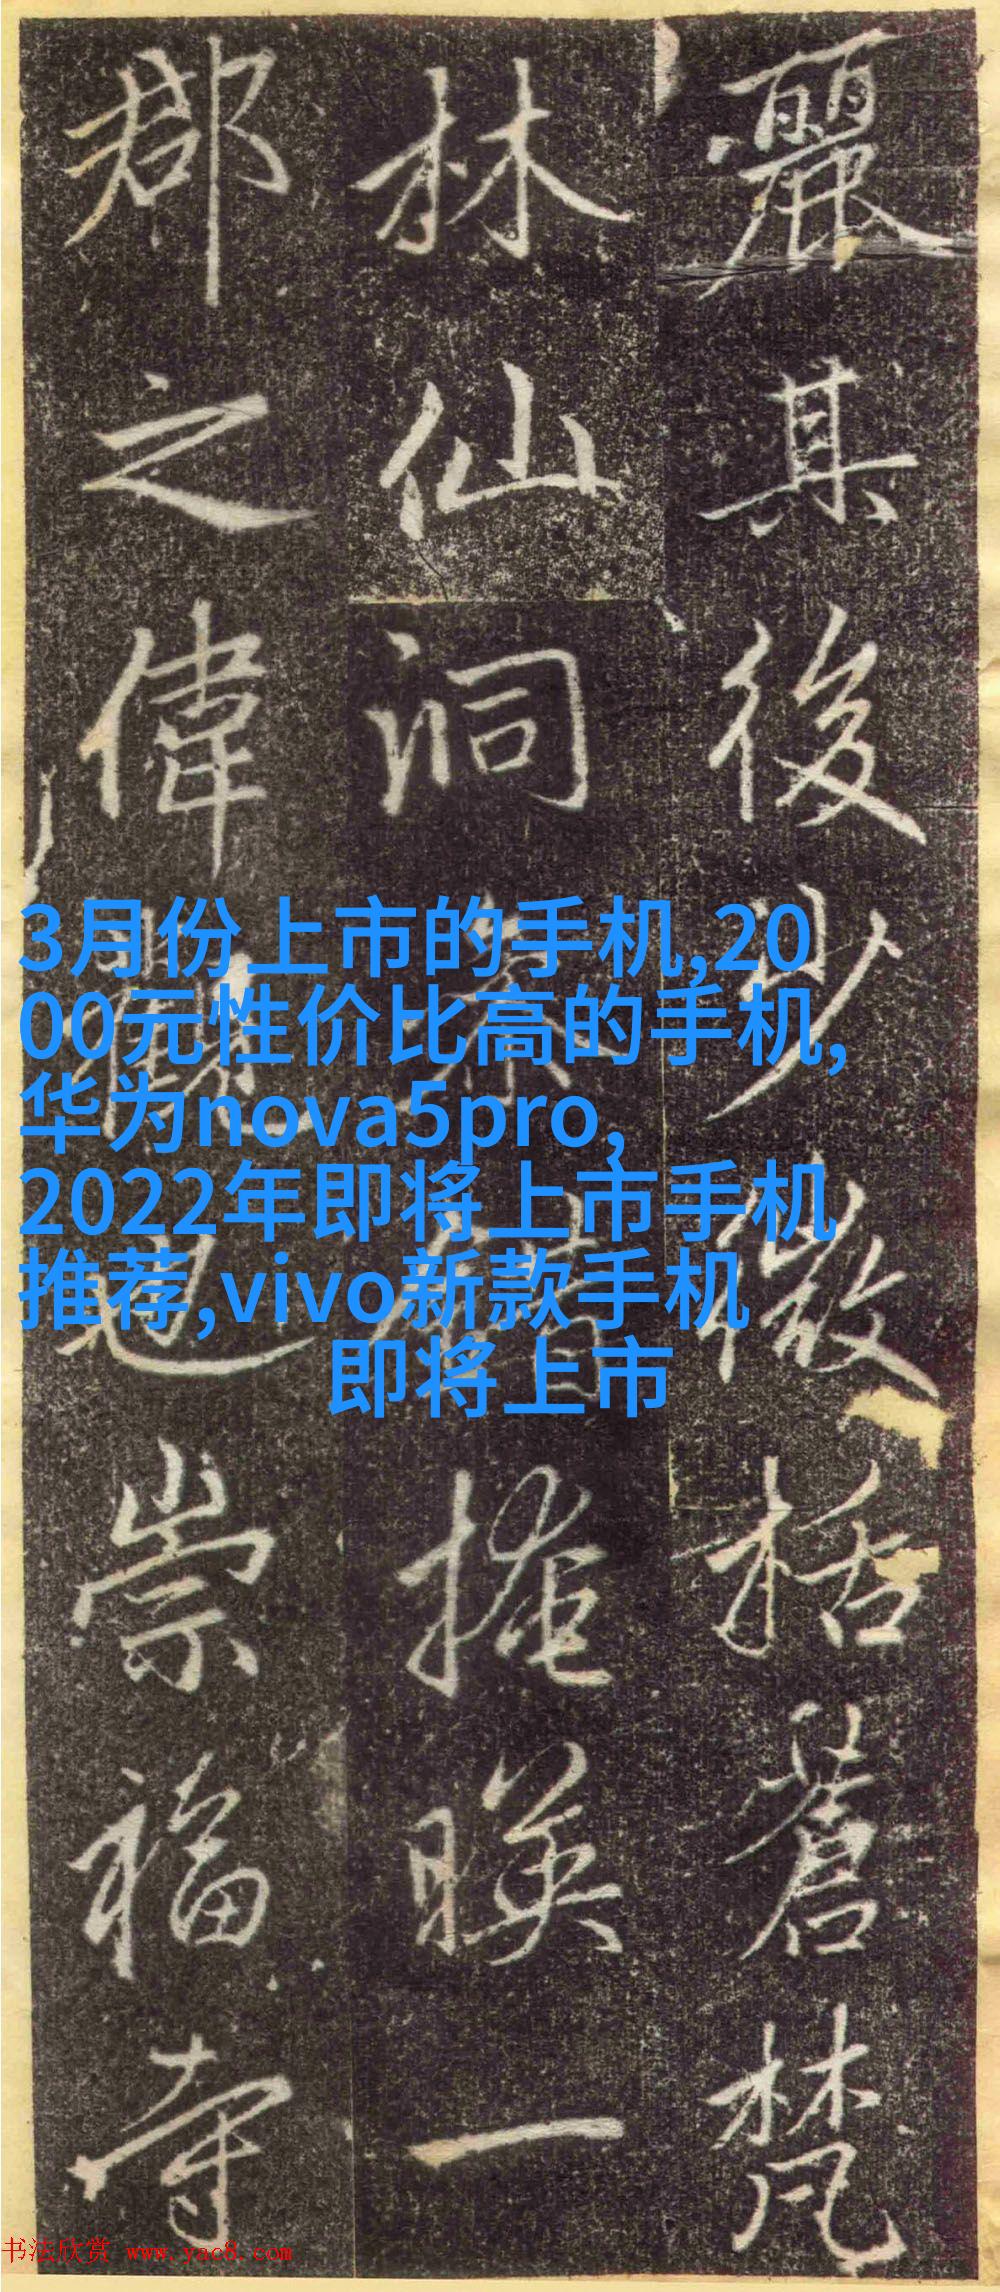 麗其後少微括蒼梵
林仙洞掩暎一
郡之偉觀也崇福寺
3月份上市的手机,20
00元性价比高的手机,
华为nova5pro,
2022年即将上市手机
推荐,vivo新款手机
即将上市
书法欣赏 www.yac8.com